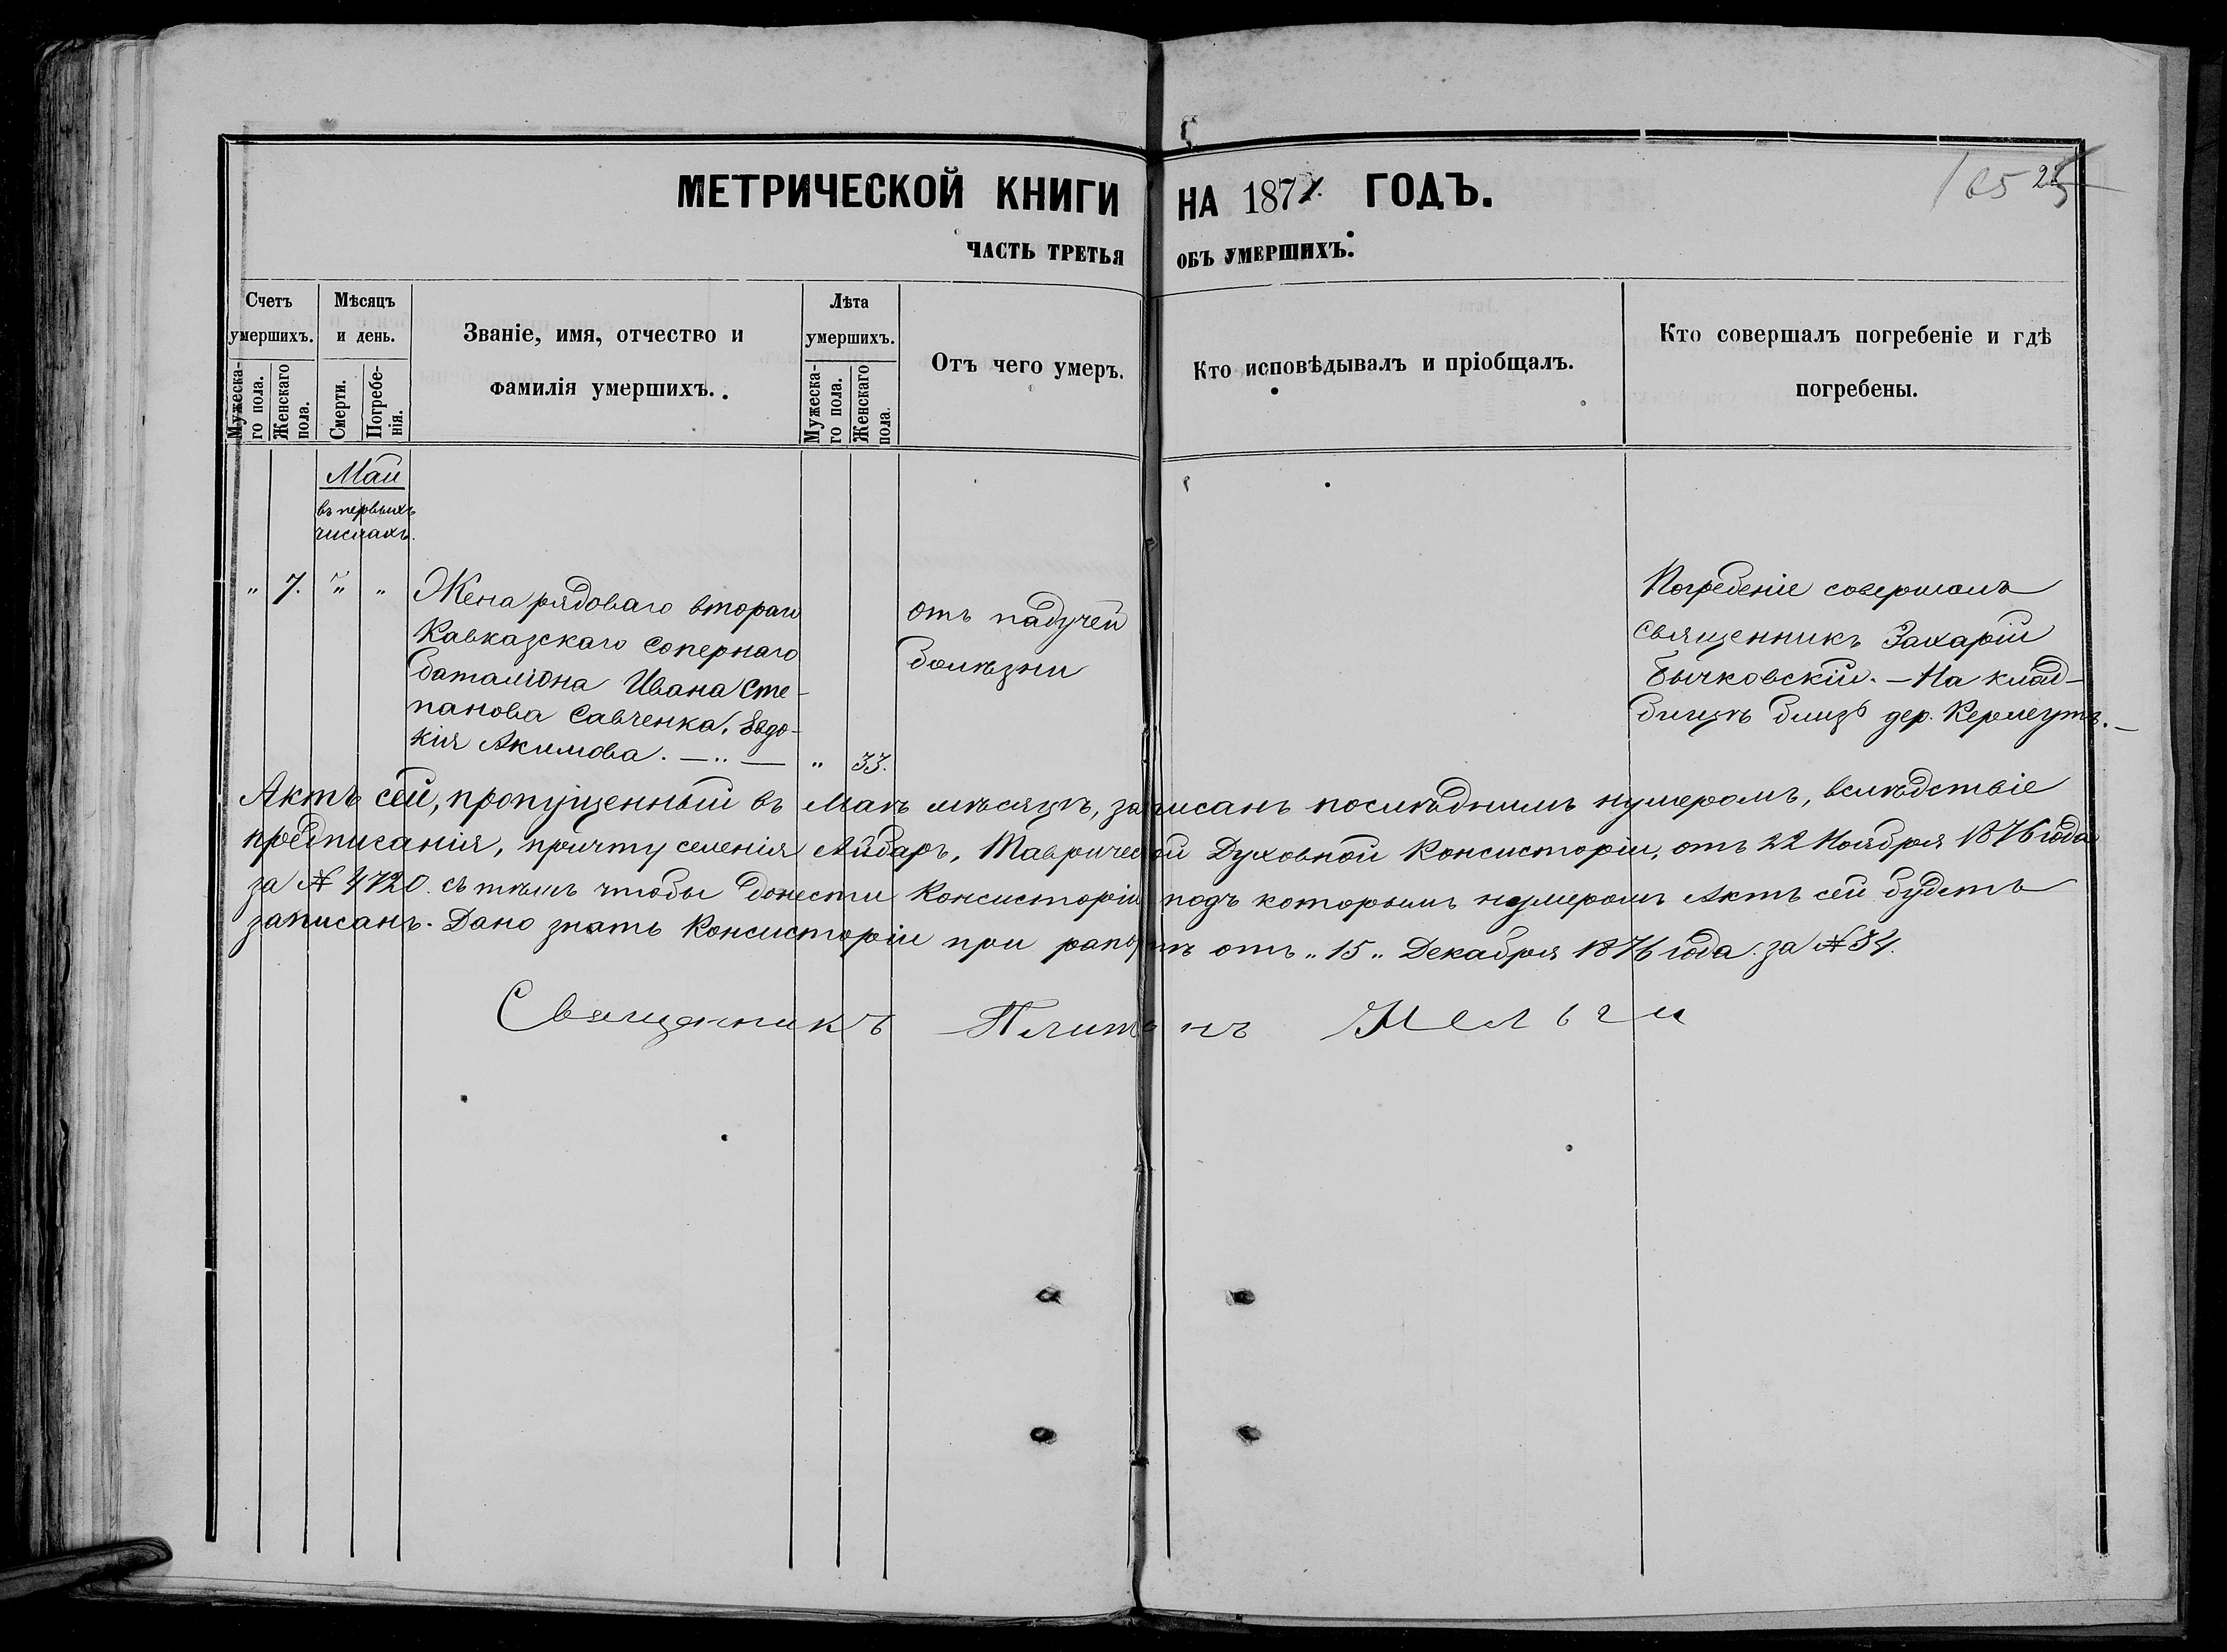 МЕТРИЧЕСКОЙ КНИГИ НА 1871. ГОДЪ.
25
ЧАСТЬ ТРЕТЬЯ ОБЪ УМЕРШИХЪ.
Счетъ умершихъ.
Мужеска-го пола.
Женскаго пола.
Мѣсяцъ и день.
Смерти.
Погребе-нія.
Званіе, имя, отчество и
фамилія умершихъ.
Лѣта умершихъ.
Мужеска-го пола.
Женскаго пола.
Отъ чего умеръ.
Кто исповѣдывалъ и пріобщалъ.
Кто совершалъ погребеніе и гдѣ
погребены.
Май
въ первыхъ
числахъ.
„ 7. „ „
Жена рядоваго втораго
Кавказскаго Сапернаго
баталіона Ивана Сте-
панова Савченка, Евдо-
кія Акимова. — „ —
„ 33.
отъ падучей
болѣзни
Погребеніе совершалъ
Священникъ Захарій
Бычковскій. — На клад-
бищѣ близъ дер.
Актъ сей, пропущенный въ Маѣ мѣсяцѣ, записанъ послѣднимъ нумеромъ, вслѣдствіе
предписанія, причту селенія Айбаръ, Таврической Духовной Консисторіи, отъ 22 Ноября 1876 года
за № 4720. съ тѣмъ чтобы донести Консисторіи подъ которымъ нумеромъ Актъ сей будетъ
записанъ. Дано знать Консисторіи при рапортѣ отъ „15„ Декабря 1876 года. за № 34.
Священникъ Платонъ